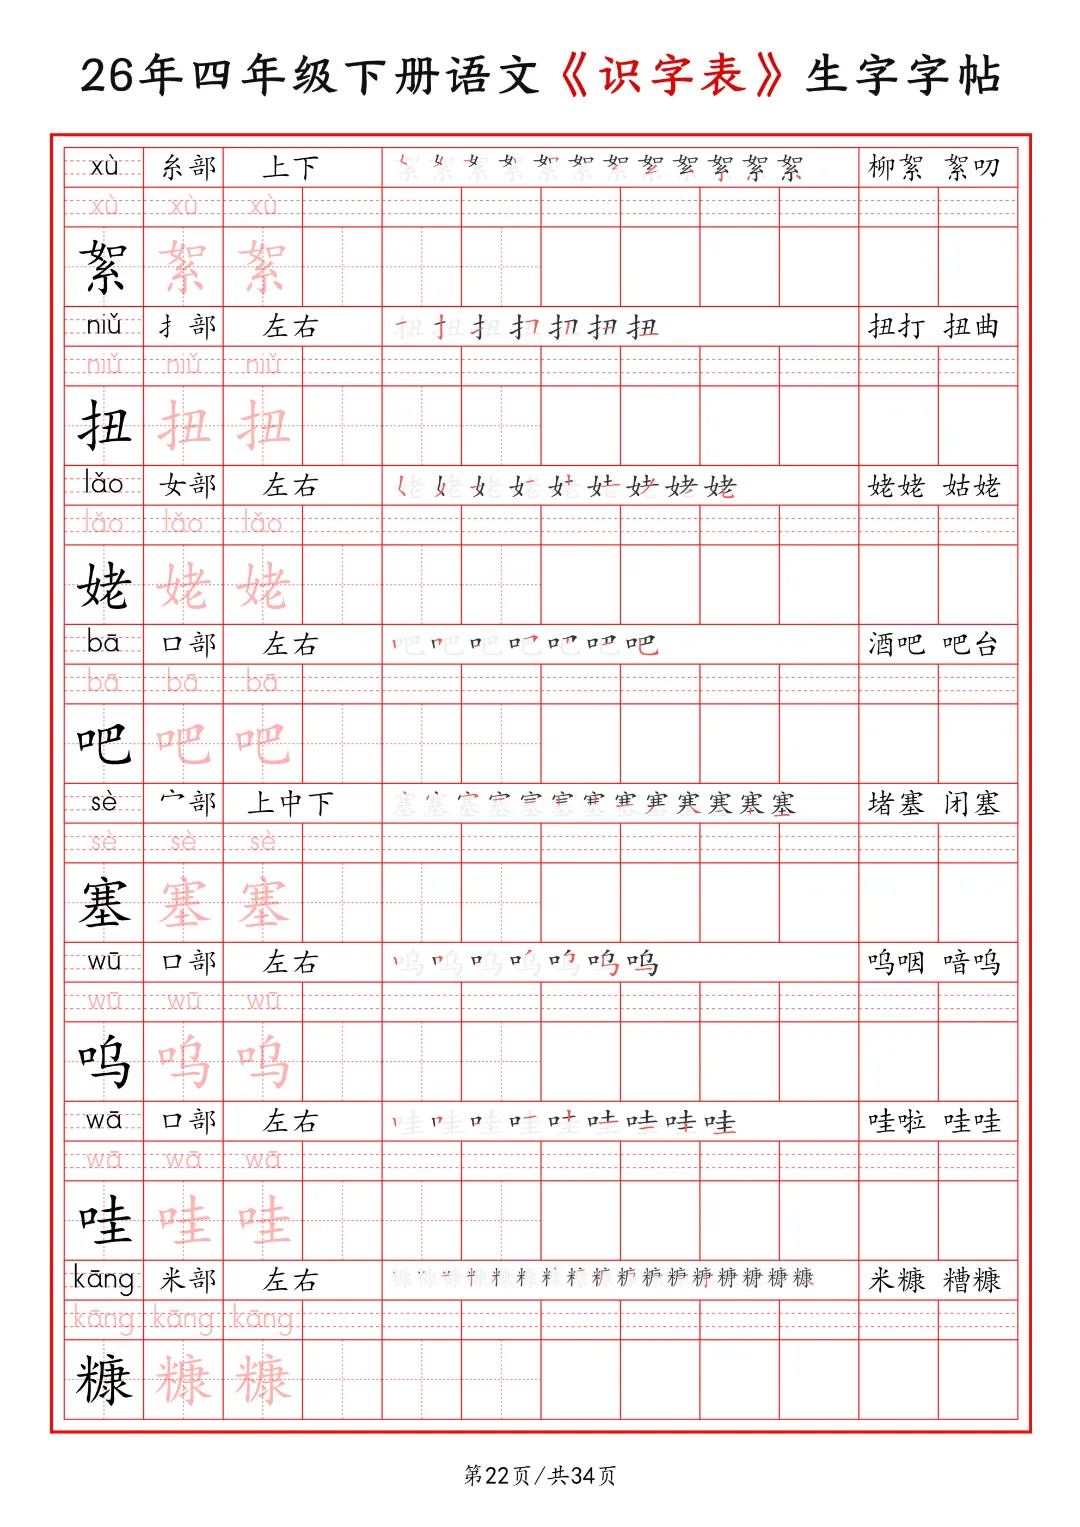 26年四年级下册语文《识字表》生字字帖
xù 糸部 上下 柳絮 絮叨
xù xù xù
絮 絮 絮
niǔ 扌部 左右 扭打 扭曲
niǔ niǔ niǔ
扭 扭 扭
lǎo 女部 左右 姥姥 姑姥
lǎo lǎo lǎo
姥 姥 姥
bā 口部 左右 酒吧 吧台
bā bā bā
吧 吧 吧
sè 宀部 上中下 堵塞 闭塞
sè sè sè
塞 塞 塞
wū 口部 左右 呜咽 喑呜
wū wū wū
呜 呜 呜
wā 口部 左右 哇啦 哇哇
wā wā wā
哇 哇 哇
kāng 米部 左右 米糠 糟糠
kāng kāng kāng
糠 糠 糠
第22页/共34页